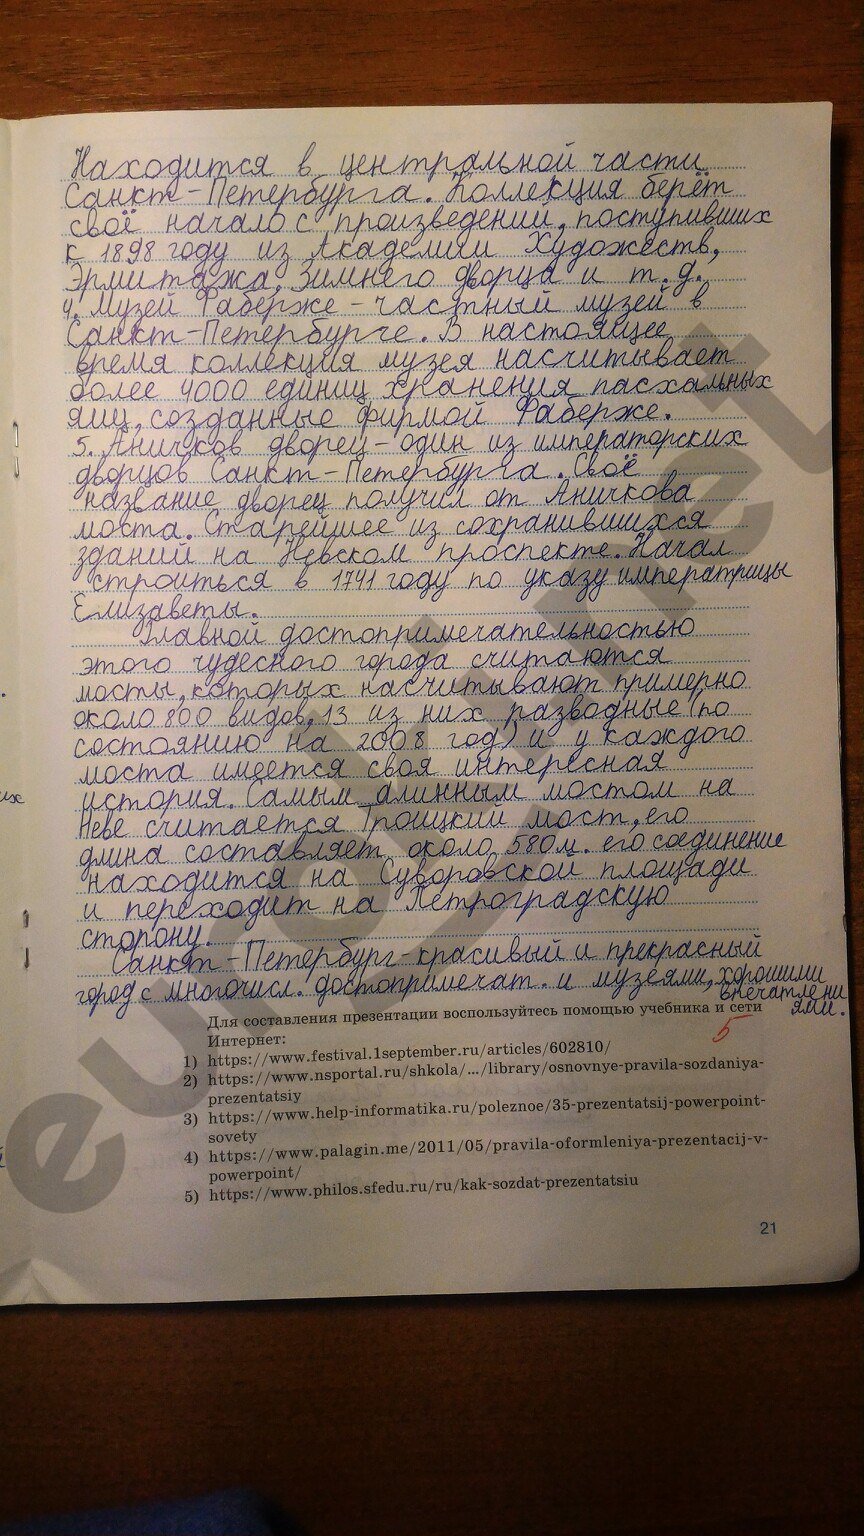 Находится в центральной части
Санкт-Петербурга. Коллекция берёт
своё начало с произведений, поступивших
к 1898 году из Академии Художеств,
Эрмитажа, Зимнего дворца и т.д.
4. Музей Фаберже - частный музей в
Санкт-Петербурге. В настоящее
время коллекция музея насчитывает
более 4000 единиц хранения пасхальных
яиц, созданные фирмой Фаберже.
5. Аничков дворец - один из императорских
дворцов Санкт-Петербурга. Своё
название дворец получил от Аничкова
моста. Старейшее из сохранившихся
зданий на Невском проспекте. Начал
строиться в 1741 году по указу императрицы
Елизаветы.
Главной достопримечательностью
этого чудесного города считаются
мосты, которых насчитывают примерно
около 800 видов, 13 из них разводные (по
состоянию на 2008 год) и у каждого
моста имеется своя интересная
история. Самым длинным мостом на
Неве считается Троицкий мост, его
длина составляет около 580м. его соединение
находится на Суворовской площади
и переходит на Петроградскую
сторону.
Санкт-Петербург - красивый и прекрасный
город с многочисл. достопримечат. и музеями, хорошими
впечатлени
ями.
Для составления презентации воспользуйтесь помощью учебника и сети
Интернет:
5
1) https://www.festival.1september.ru/articles/602810/
2) https://www.nsportal.ru/shkola/.../library/osnovnye-pravila-sozdaniya-
prezentatsiy
3) https://www.help-informatika.ru/poleznoe/35-prezentatsij-powerpoint-
sovety
4) https://www.palagin.me/2011/05/pravila-oformleniya-prezentacij-v-
powerpoint/
5) https://www.philos.sfedu.ru/ru/kak-sozdat-prezentatsiu
21
eurokі.net